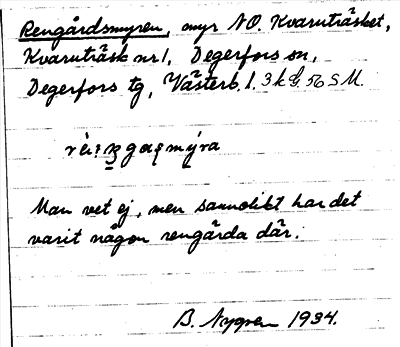 Rengårdsmyren, myr NO. Kvarnträsket,
Kvarnträsk nr 1, Degerfors sn,
Degerfors tg, Västerb. l. 3 k G. 56 S M.
mýra
Man vet ej, men sannolikt har det
varit någon rengärda där.
B. Nygren 1934.